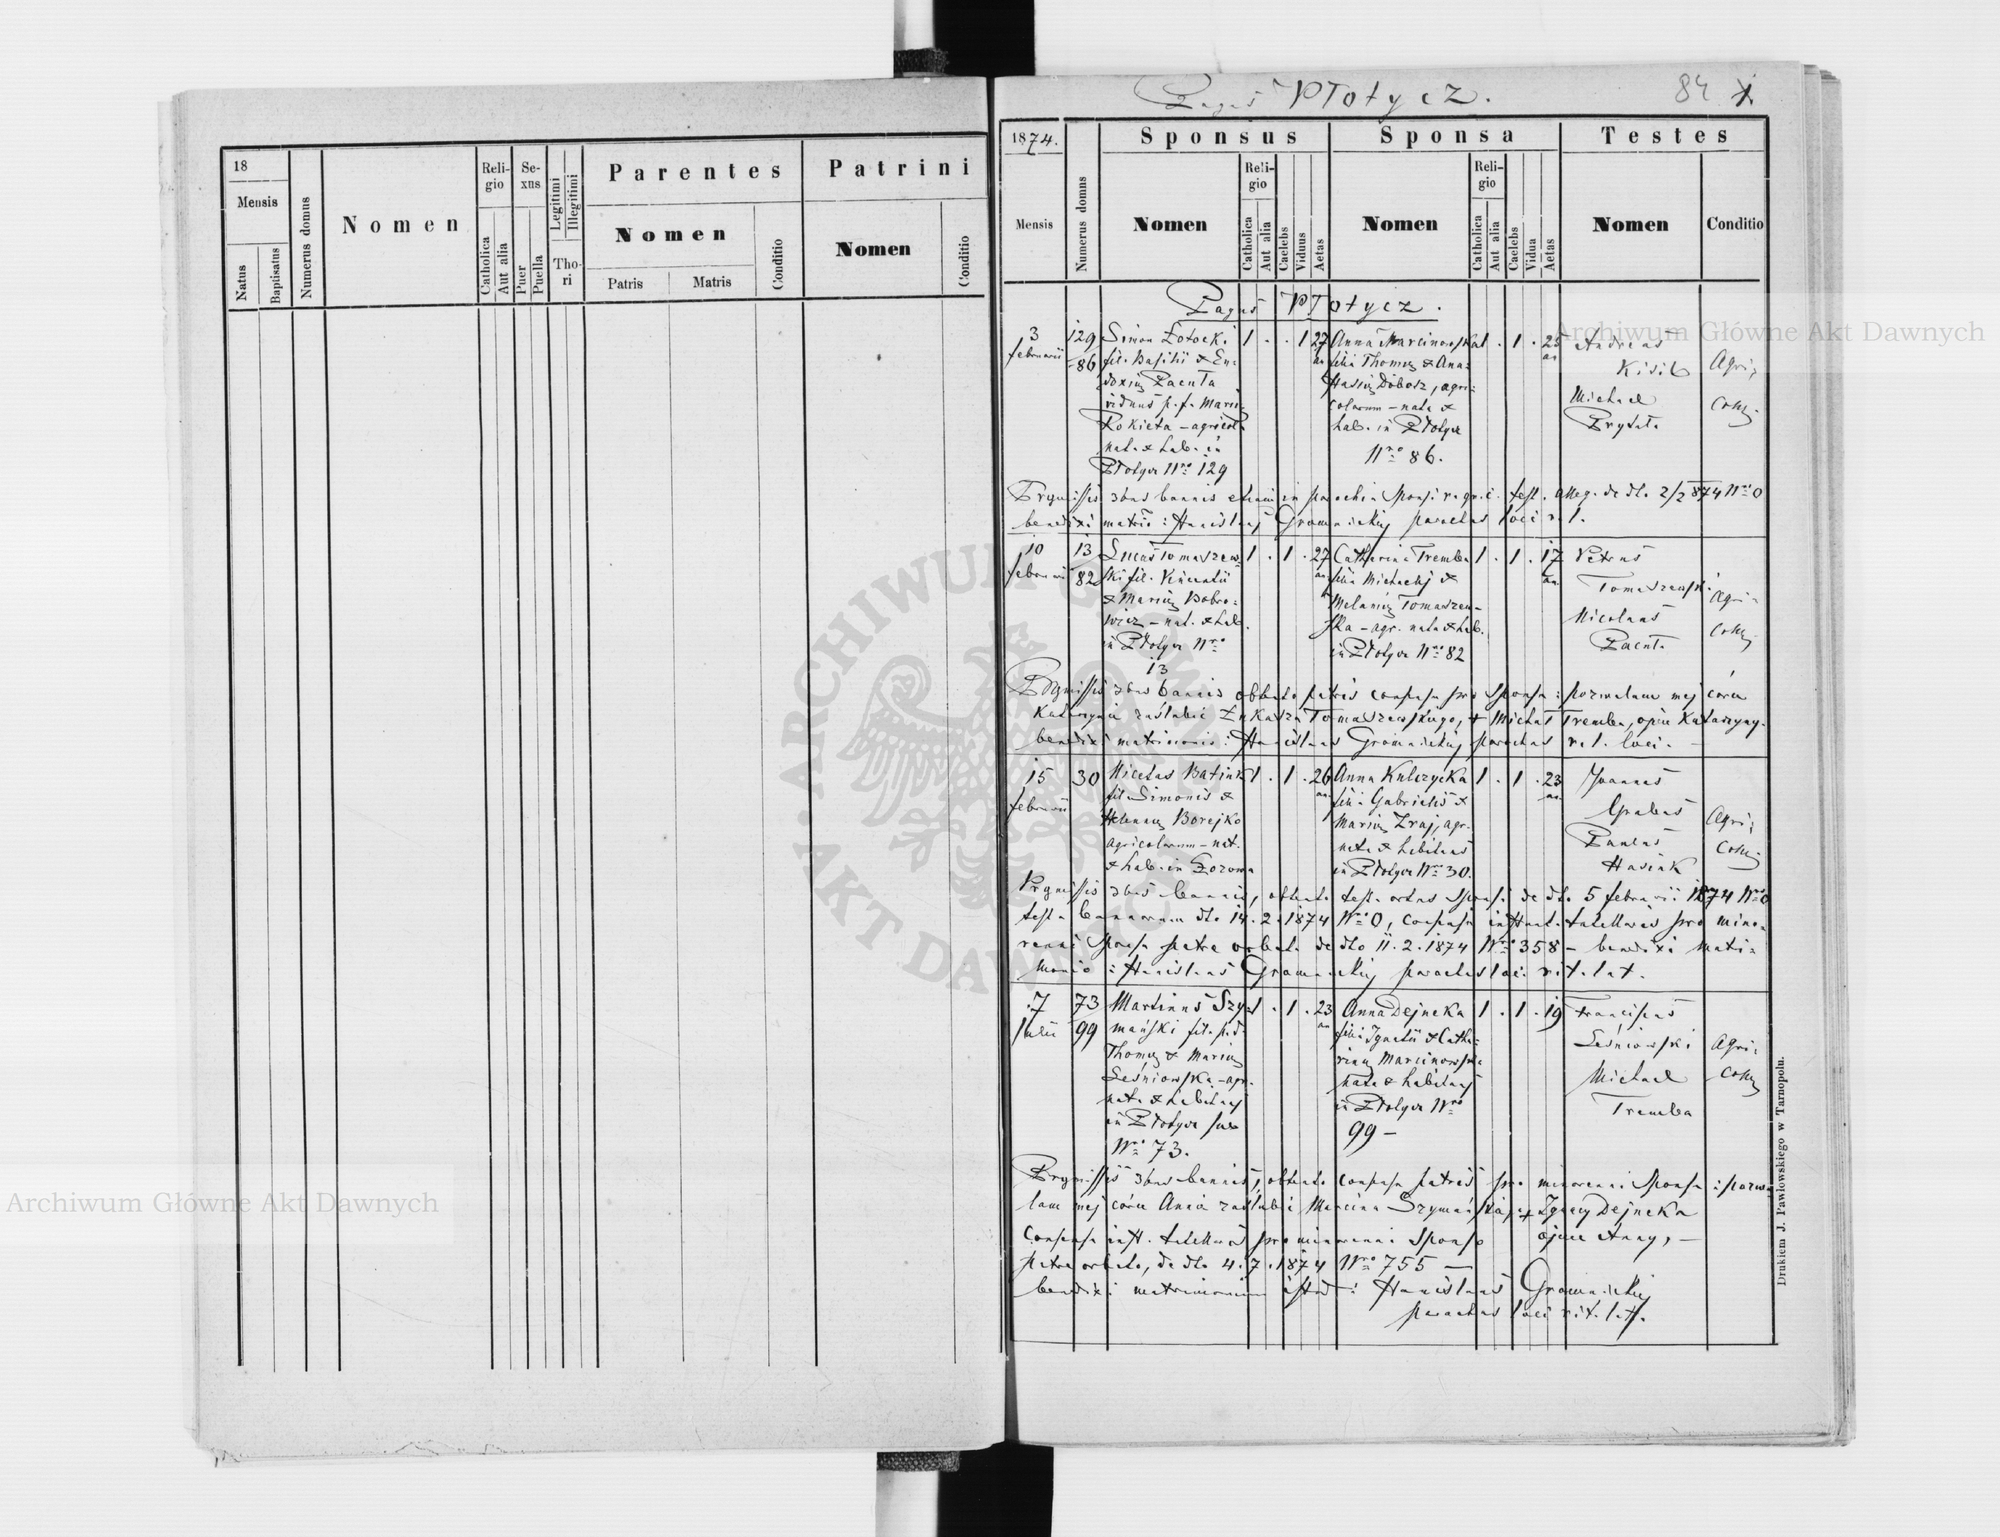 Pagus Płotycz.
84
18
Mensis
Natus
Baptisatus
Numerus domus
Nomen
Religio
Catholica
Aut alia
Sexus
Puer
Puella
Legitimi
Illegitimi
Thori
Parentes
Nomen
Patris
Matris
Conditio
Patrini
Nomen
Conditio
1874.
Mensis
Numerus domus
Sponsus
Nomen
Religio
Catholica
Aut alia
Caelebs
Viduus
Aetas
Sponsa
Nomen
Religio
Catholica
Aut alia
Caelebs
Vidua
Aetas
Testes
Nomen
Conditio
Pagus Płotycz.
3
februarii
129
86
Simon
fil. Basilii &
viduus p. f.
Rokieta – agricol.
nat. & hab. in
Płotycz Nro 129
1 . . 1 27
Anna Marcinowska
filia Thomæ & Ana=
stasiæ Dobosz, agri=
colarum – nata &
hab. in Płotycz
Nro 86.
1 . 1 . 25
an
Andreas
Kisil
Michael
Agri=
colæ.
Præmissis 3bus bannis etiam in parochia Sponsi r. gr. c. test. alleg. de dto 2/2 874 Nro 0
benedixi matrio: Stanislaus Gromnickij parochus loci r. l.
10
februarii
13
82
Lucas Tomaszew=
ski fil.
& Mariæ Bobro=
wicz – nat. & hab.
in Płotycz Nro
13
1 . 1 . 27
an.
Catharina Tremba
filia Michaelis &
Melaniæ Tomaszew=
ska – agr. nata & hab.
in Płotycz Nro 82
1 . 1 . 17
an.
Petrus
Tomaszewski.
Nicolaus
Agri=
colæ
Præmissis 3bus bannis obtento patris consensu pro Sponsa: pozwalam mej córce
Katarzynie zaślubić Łukasza Tomaszewskiego, + Michał Tremba, ojciec Katarzyny.
benedixi matrimonio: Stanislaus Gromnickij parochus r. l. loci. –
15
februarii
30
Nicetas
fil. Simonis &
Helenæ Borejko
agricolarum – nat.
& hab. in
1 . 1 . 26
an.
Anna Kulczycka
filia Gabrielis &
Mariæ Zraj, agr.
nata & habitans
in Płotycz Nro 30.
1 . 1 . 23
an.
Joannes
Paulus
Agri=
colæ
Præmissis 3bus bannis, obtento test. ortus Sponsi de dto 5 februarii 1874 Nro 0
test. bannorum dto 14.2.1874 Nro 0, consensu inst. tutellaris pro mino=
renni Sponsa patre orbata de dto 11.2.1874 Nro 358 – benedixi matri=
monio: Stanislaus Gromnickij parochus loci rit. lat.
7
Julii
73
99
Martinus Szy=
mański fil. p. d.
Thomæ & Mariæ
Leśniowska – agr.
nat. & habitans
in Płotycz sub
Nro 73.
1 . 1 . 23
an
Anna Dejneka
filia Ignatii & Catha=
rinæ Marcinowska
nata & habitans
in Płotycz Nro
99 –
1 . 1 . 19
Franciscus
Leśniowski
Michael
Tremba
Agri=
colæ
Præmissis 3bus bannis, obtento consensu patris pro minorenni Sponsa: pozwa=
lam mej córce Annie zaślubić Marcina Szymańskiego + Ignacy Dejneka
ojciec Anny, –
Consensu inst. tutellaris pro minorenni Sponso
patre orbato, de dto 4.7.1874 Nro 755 –
benedixi matrimonium istud: Stanislaus Gromnickij
parochus loci rit. lat.
Drukiem J. Pawłowskiego w Tarnopolu.
Archiwum Główne Akt Dawnych
Archiwum Główne Akt Dawnych
ARCHIWUM GŁÓWNE AKT DAWNYCH